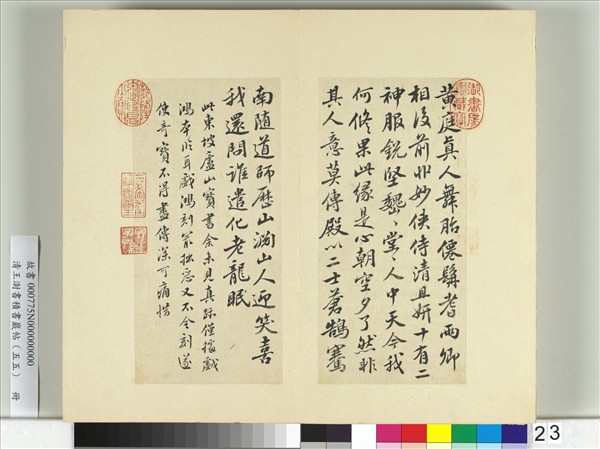 黃庭真人舞胎僊髯耆兩卿
相後前丱妙俠侍清且妍十有二
神服銳堅巍巍堂堂人中天令我
何修果此緣是心朝空夕了然非
其人意莫傳殿以二士蒼鵠騫
南隨道師歷山淵山人迎笑喜
我還問誰遣化老龍眠
此東坡廬山寶書余未見真跡僅據戲
鴻本臨耳戲鴻刻笨拙惡又不全刻遂
使奇寶不得盡傳深可痛惜
故書 000775N000000000
清王澍書積書巖帖(五五) 冊
23